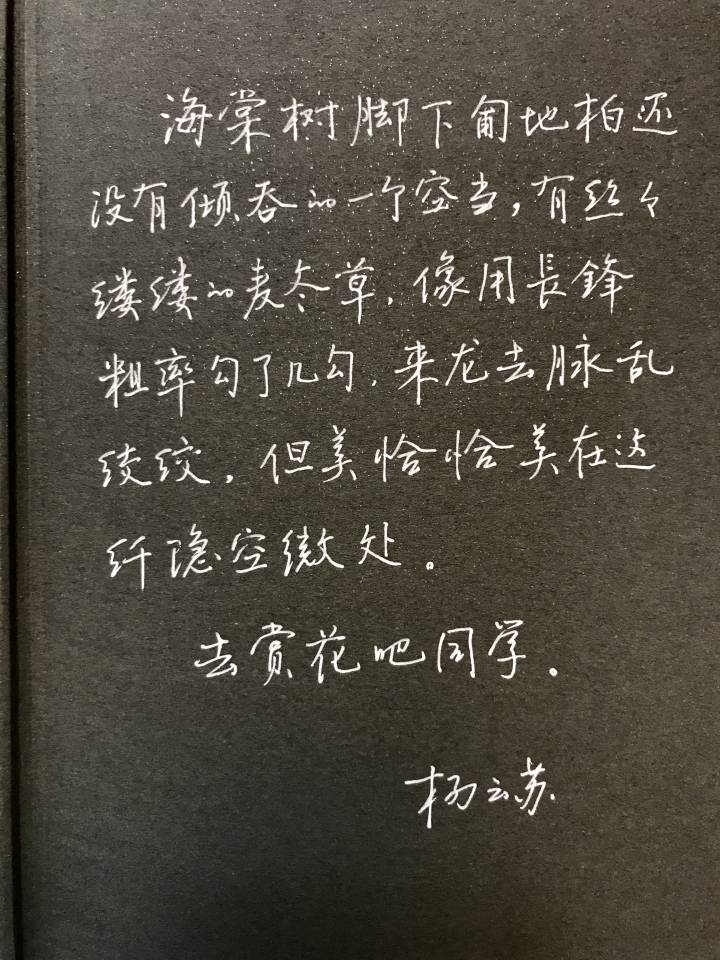 海棠树脚下匍地柏还
没有倾吞的一个空当,有丝々
缕缕的麦冬草,像用長鋒
粗率勾了几勾,来龙去脉乱
绞绞,但美恰恰美在这
纤隐空微处。
去赏花吧同学。
杨云苏